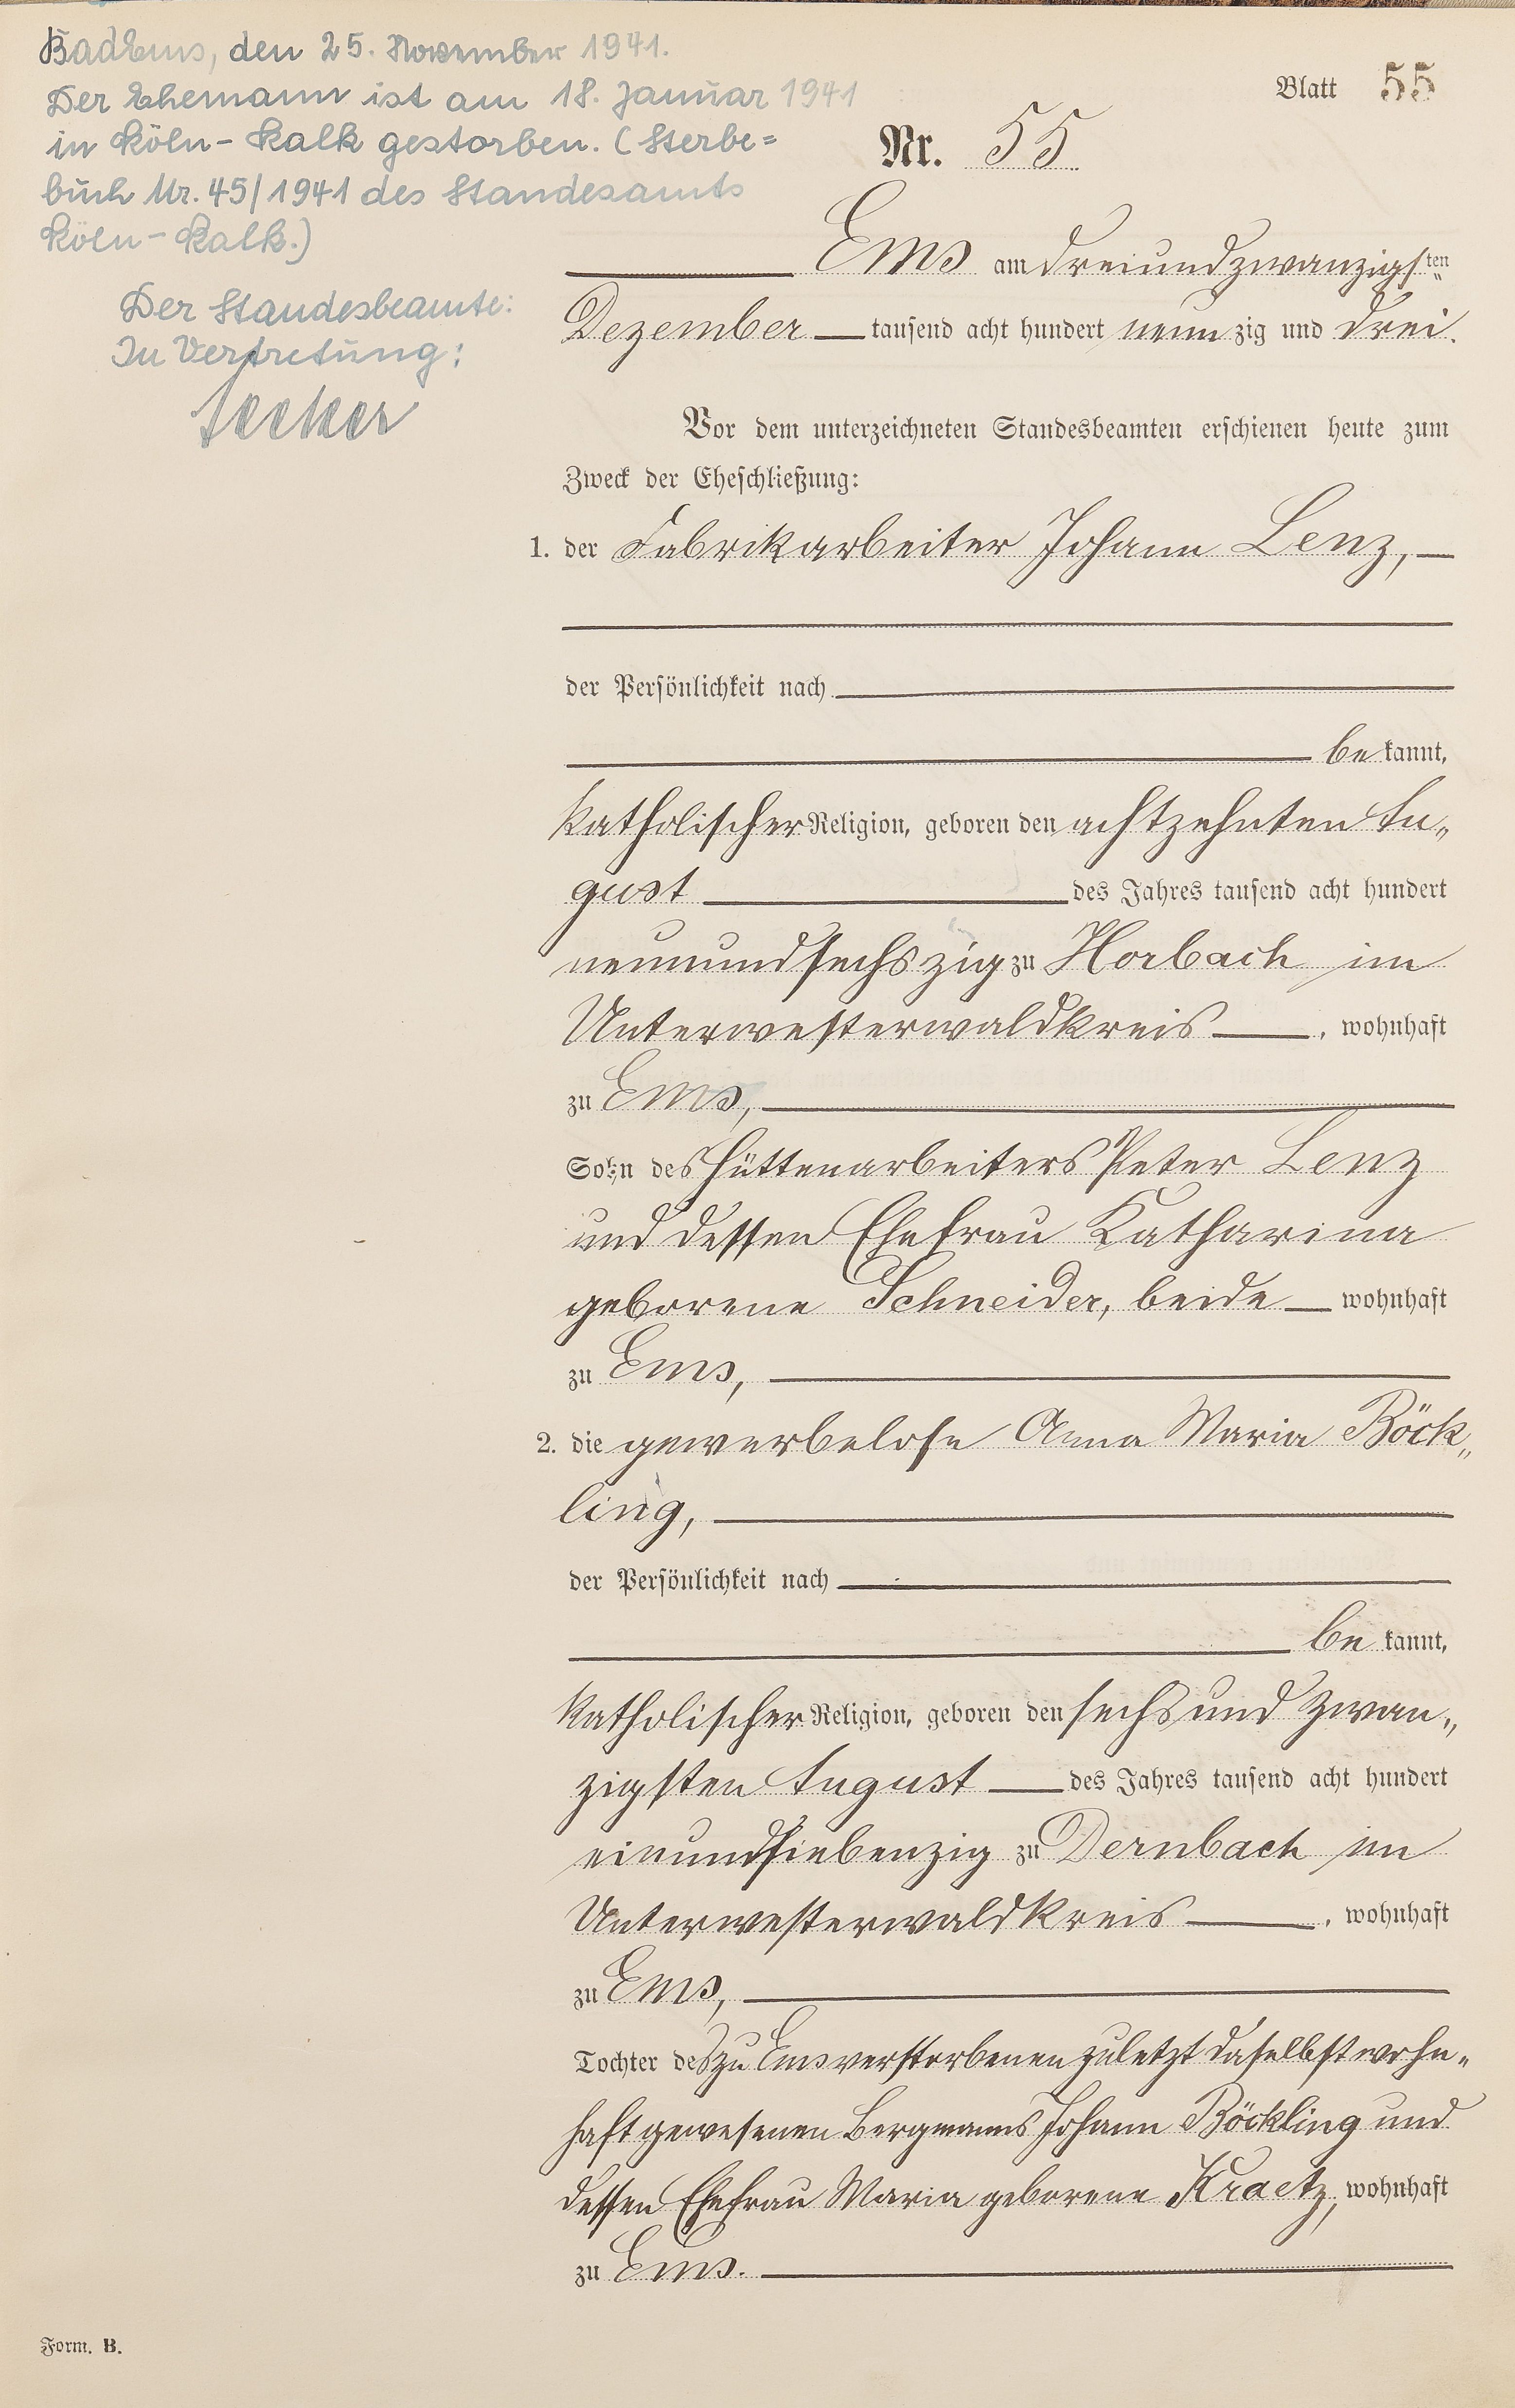 Bad Ems, den 25. November 1941.
Der Ehemann ist am 18. Januar 1941
in Köln-Kalk gestorben. (Sterbe=
buch Nr. 45/1941 des Standesamts
Köln-Kalk.)
Der Standesbeamte:
In Vertretung:
Blatt 55
Nr. 55
Ems am dreiundzwanzigsten
Dezember tausend acht hundert neunzig und drei.
Vor dem unterzeichneten Standesbeamten erschienen heute zum
Zweck der Eheschließung:
1. der Fabrikarbeiter Johann Lenz,
der Persönlichkeit nach
bekannt,
katholischer Religion, geboren den achtzehnten Au„
gust des Jahres tausend acht hundert
neunundsechszig zu Horbach im
Unterwesterwaldkreis, wohnhaft
zu Ems,
Sohn des Hüttenarbeiters Peter Lenz
und dessen Ehefrau Katharina
geborene Schneider, beide wohnhaft
zu Ems,
2. die gewerbelose Anna Maria Böck„
ling,
der Persönlichkeit nach
bekannt,
katholischer Religion, geboren den sechsundzwan„
zigsten August des Jahres tausend acht hundert
einundsiebenzig zu Dernbach im
Unterwesterwaldkreis, wohnhaft
zu Ems,
Tochter des zu Ems verstorbenen zuletzt daselbst wohn„
haft gewesenen Bergmanns Johann Böckling und
dessen Ehefrau Maria geborene Kraetz, wohnhaft
zu Ems.
Form. B.